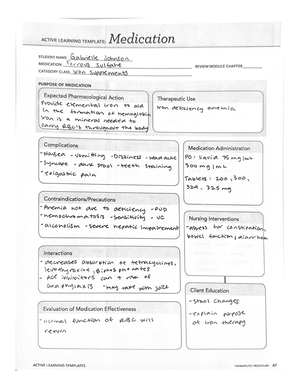 ACTIVE LEARNING TEMPLATE: Medication
STUDENT NAME Gabrielle Johnson
MEDICATION Ferrous Sulfate
REVIEW MODULE CHAPTER
CATEGORY CLASS Iron Supplements
PURPOSE OF MEDICATION
Expected Pharmacological Action
Provide elemental iron to aid
in the formation of hemoglobin
Iron is a mineral needed to
carry RBC's throughout the body
Therapeutic Use
Iron deficiency anemia
Complications
-Nausea -vomiting -Dizziness -headache
-Syncope -dark stool -teeth staining
-epigastric pain
Medication Administration
PO: liquid 75 mg/mL
300 mg/mL
Tablets: 200, 300,
324, 325 mg
Contraindications/Precautions
-Anemia not due to deficiency -PUD
-hemochromatosis -sensitivity -UC
-alcoholism -severe hepatic impairment
Nursing Interventions
-assess for constipation,
bowel function, diarrhea
Interactions
-decreases absorption of tetracyclines,
levothyroxine,
- ACE inhibitors can ↑ risk of
anaphylaxis
Client Education
-stool changes
-explain purpose
of iron therapy
Evaluation of Medication Effectiveness
-normal function of RBC will
return
ACTIVE LEARNING TEMPLATES
THERAPEUTIC PROCEDURE A7